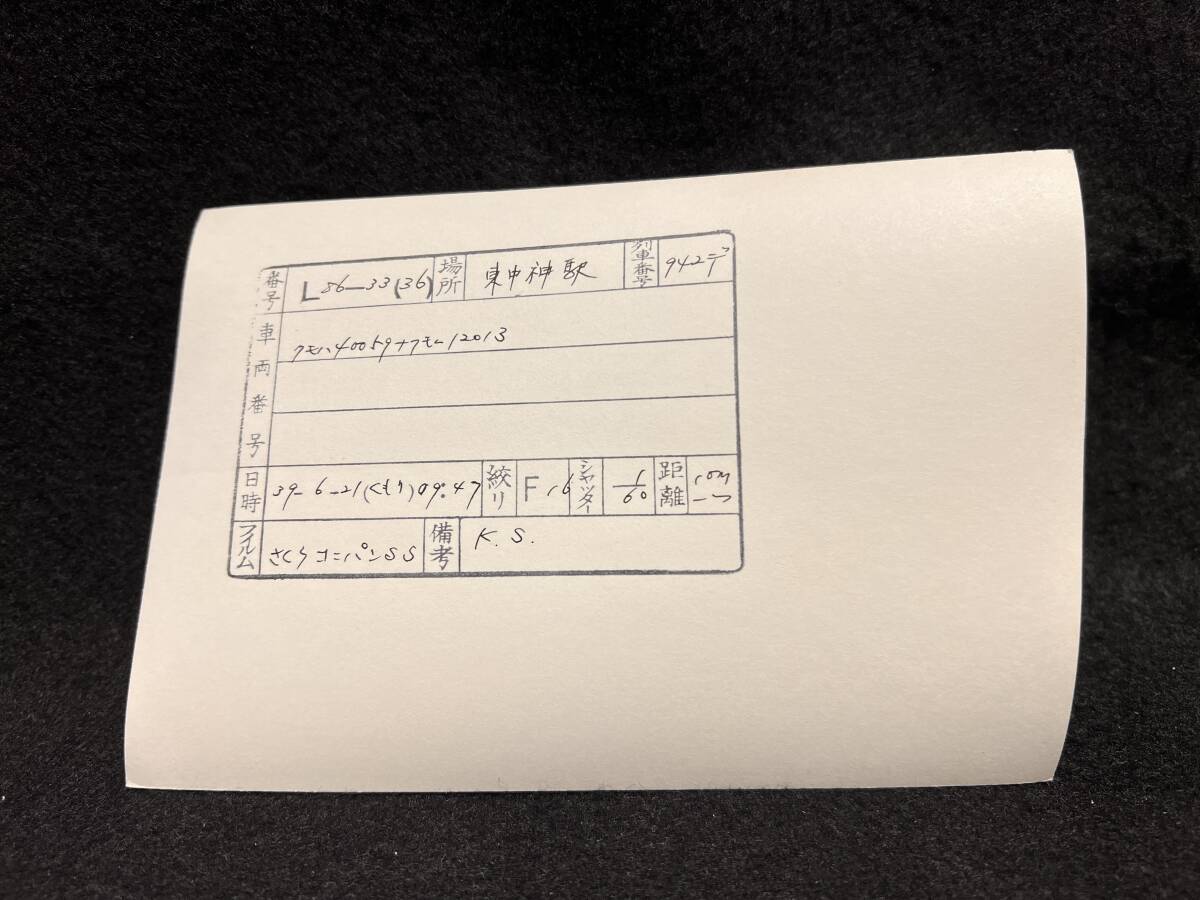 番号 L 86-33(36) 場所 東中神駅 列車番号 942デ
車両番号 クモハ40059+クモハ12013
日時 39-6-21(くもり)09:47 絞り F 16 シャッター 1/60 距離 10m
フイルム さくらコニパンSS 備考 K.S.